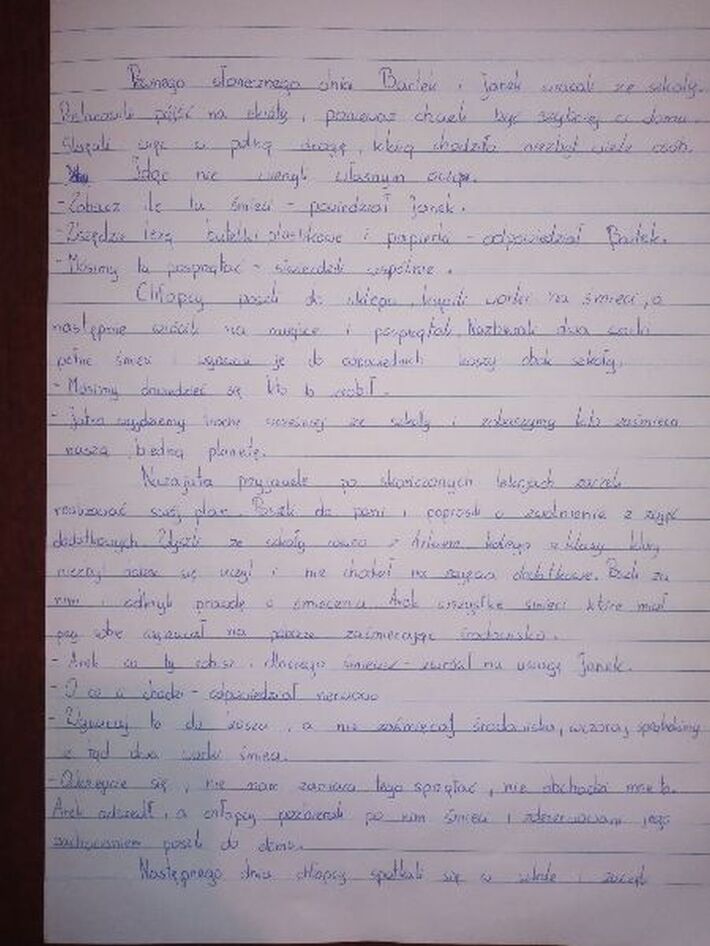 Pewnego słonecznego dnia Bartek i Janek wracali ze szkoły.
Postanowili pójść na skróty, ponieważ chcieli być szybciej w domu.
Skręcili więc w polną drogę, którą chodziło niezbyt wiele osób.
Idąc nie wierzyli własnym oczą.
- Zobacz ile tu śmieci - powiedział Janek.
- Wszędzie leżą butelki plastikowe i papierki - odpowiedział Bartek.
- Musimy tu posprzątać - stwierdzili wspólnie.
Chłopcy poszli do sklepu, kupili worki na śmieci, a
następnie wrócili na miejsce i posprzątali. Nazbierali dwa worki
pełne śmieci i wyrzucili je do odpowiednich koszy obok szkoły.
- Musimy dowiedzieć się kto to zrobił.
- Jutro wyjdziemy trochę wcześniej ze szkoły i zobaczymy kto zaśmieca
naszą biedną planetę.
Nazajutrz przyjaciele po skończonych lekcjach zaczęli
realizować swój plan. Poszli do pani i poprosili o zwolnienie z zajęć
dodatkowych. Wyszli ze szkoły razem z Arkiem kolegą z klasy, który
niezbyt dobrze się uczył i nie chodził na zajęcia dodatkowe. Szli za
nim i odkryli prawdę o śmieceniu. Arek wszystkie śmieci które miał
przy sobie wyrzucał na pobocze zaśmiecając środowisko.
- Arek co ty robisz i dlaczego śmiecisz - zwrócił mu uwagę Janek.
- O co ci chodzi - odpowiedział nerwowo
- Wyrzucaj to do kosza, a nie zaśmiecaj środowiska, wczoraj sprzątaliśmy
z tąd dwa worki śmieci.
- Odczepcie się, nie kazałem wam tego sprzątać, nie obchodzi mnie to.
Arek odszedł, a chłopcy pozbierali po nim śmieci i zdenerwowani jego
zachowaniem poszli do domu.
Następnego dnia chłopcy spotkali się w szkole i zaczęli